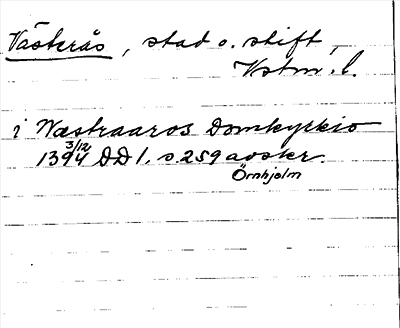 Västerås, stad o. stift
Vstm. l.
i Wæstraaros Domkyrkio
3/12
1394 DD 1. s. 259 avskr.
Örnhjelm